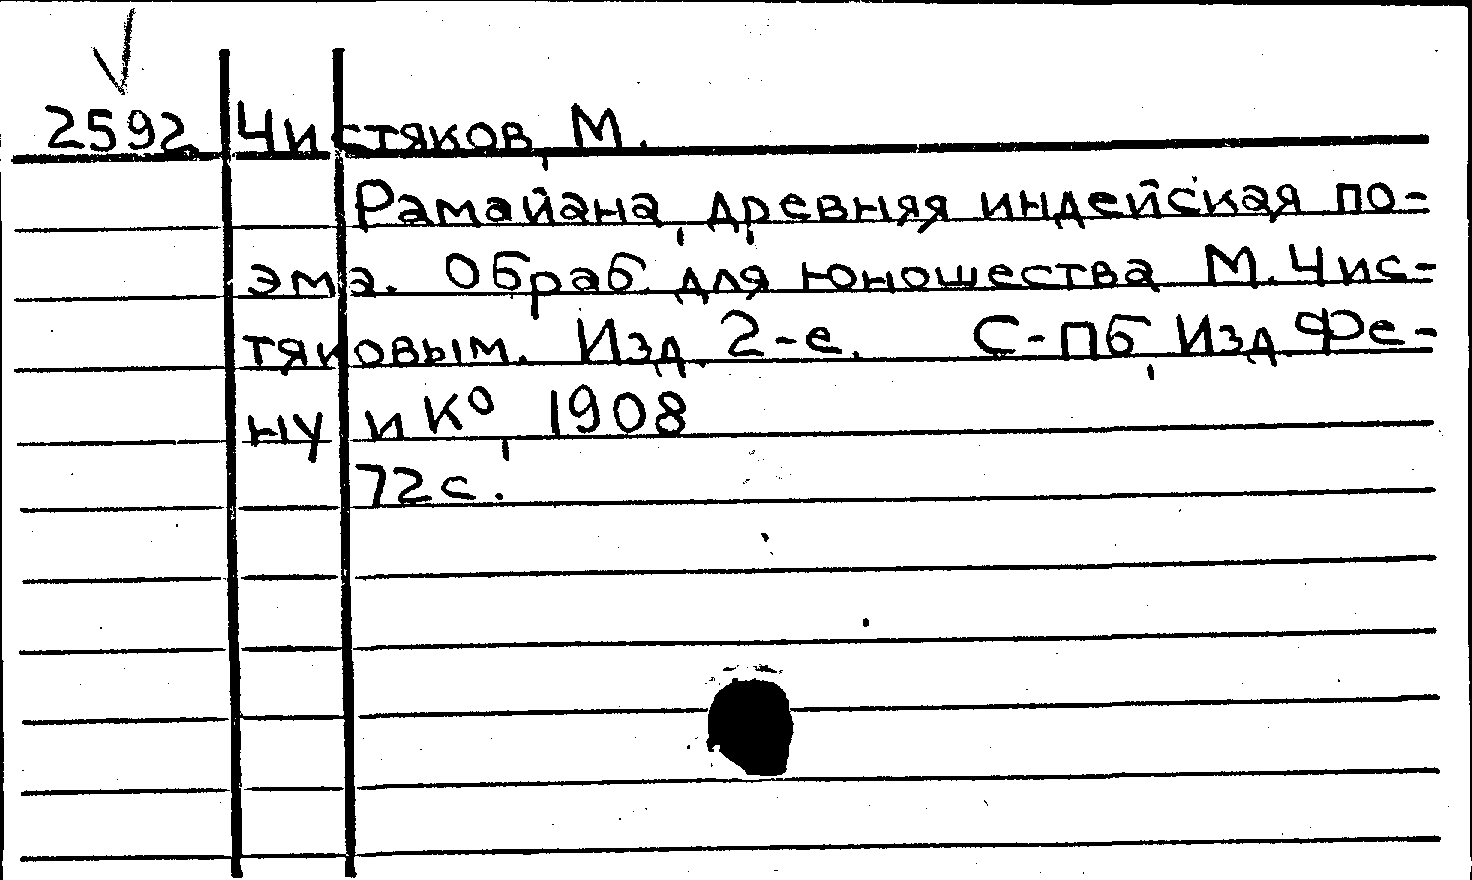 2592 Чистяков, М.
Рамайана, древняя индейская по-
эма. Обраб. для юношества М. Чис-
тяковым. Изд. 2-е. С-Пб, Изд. Фе-
ну и К°, 1908
72 с.